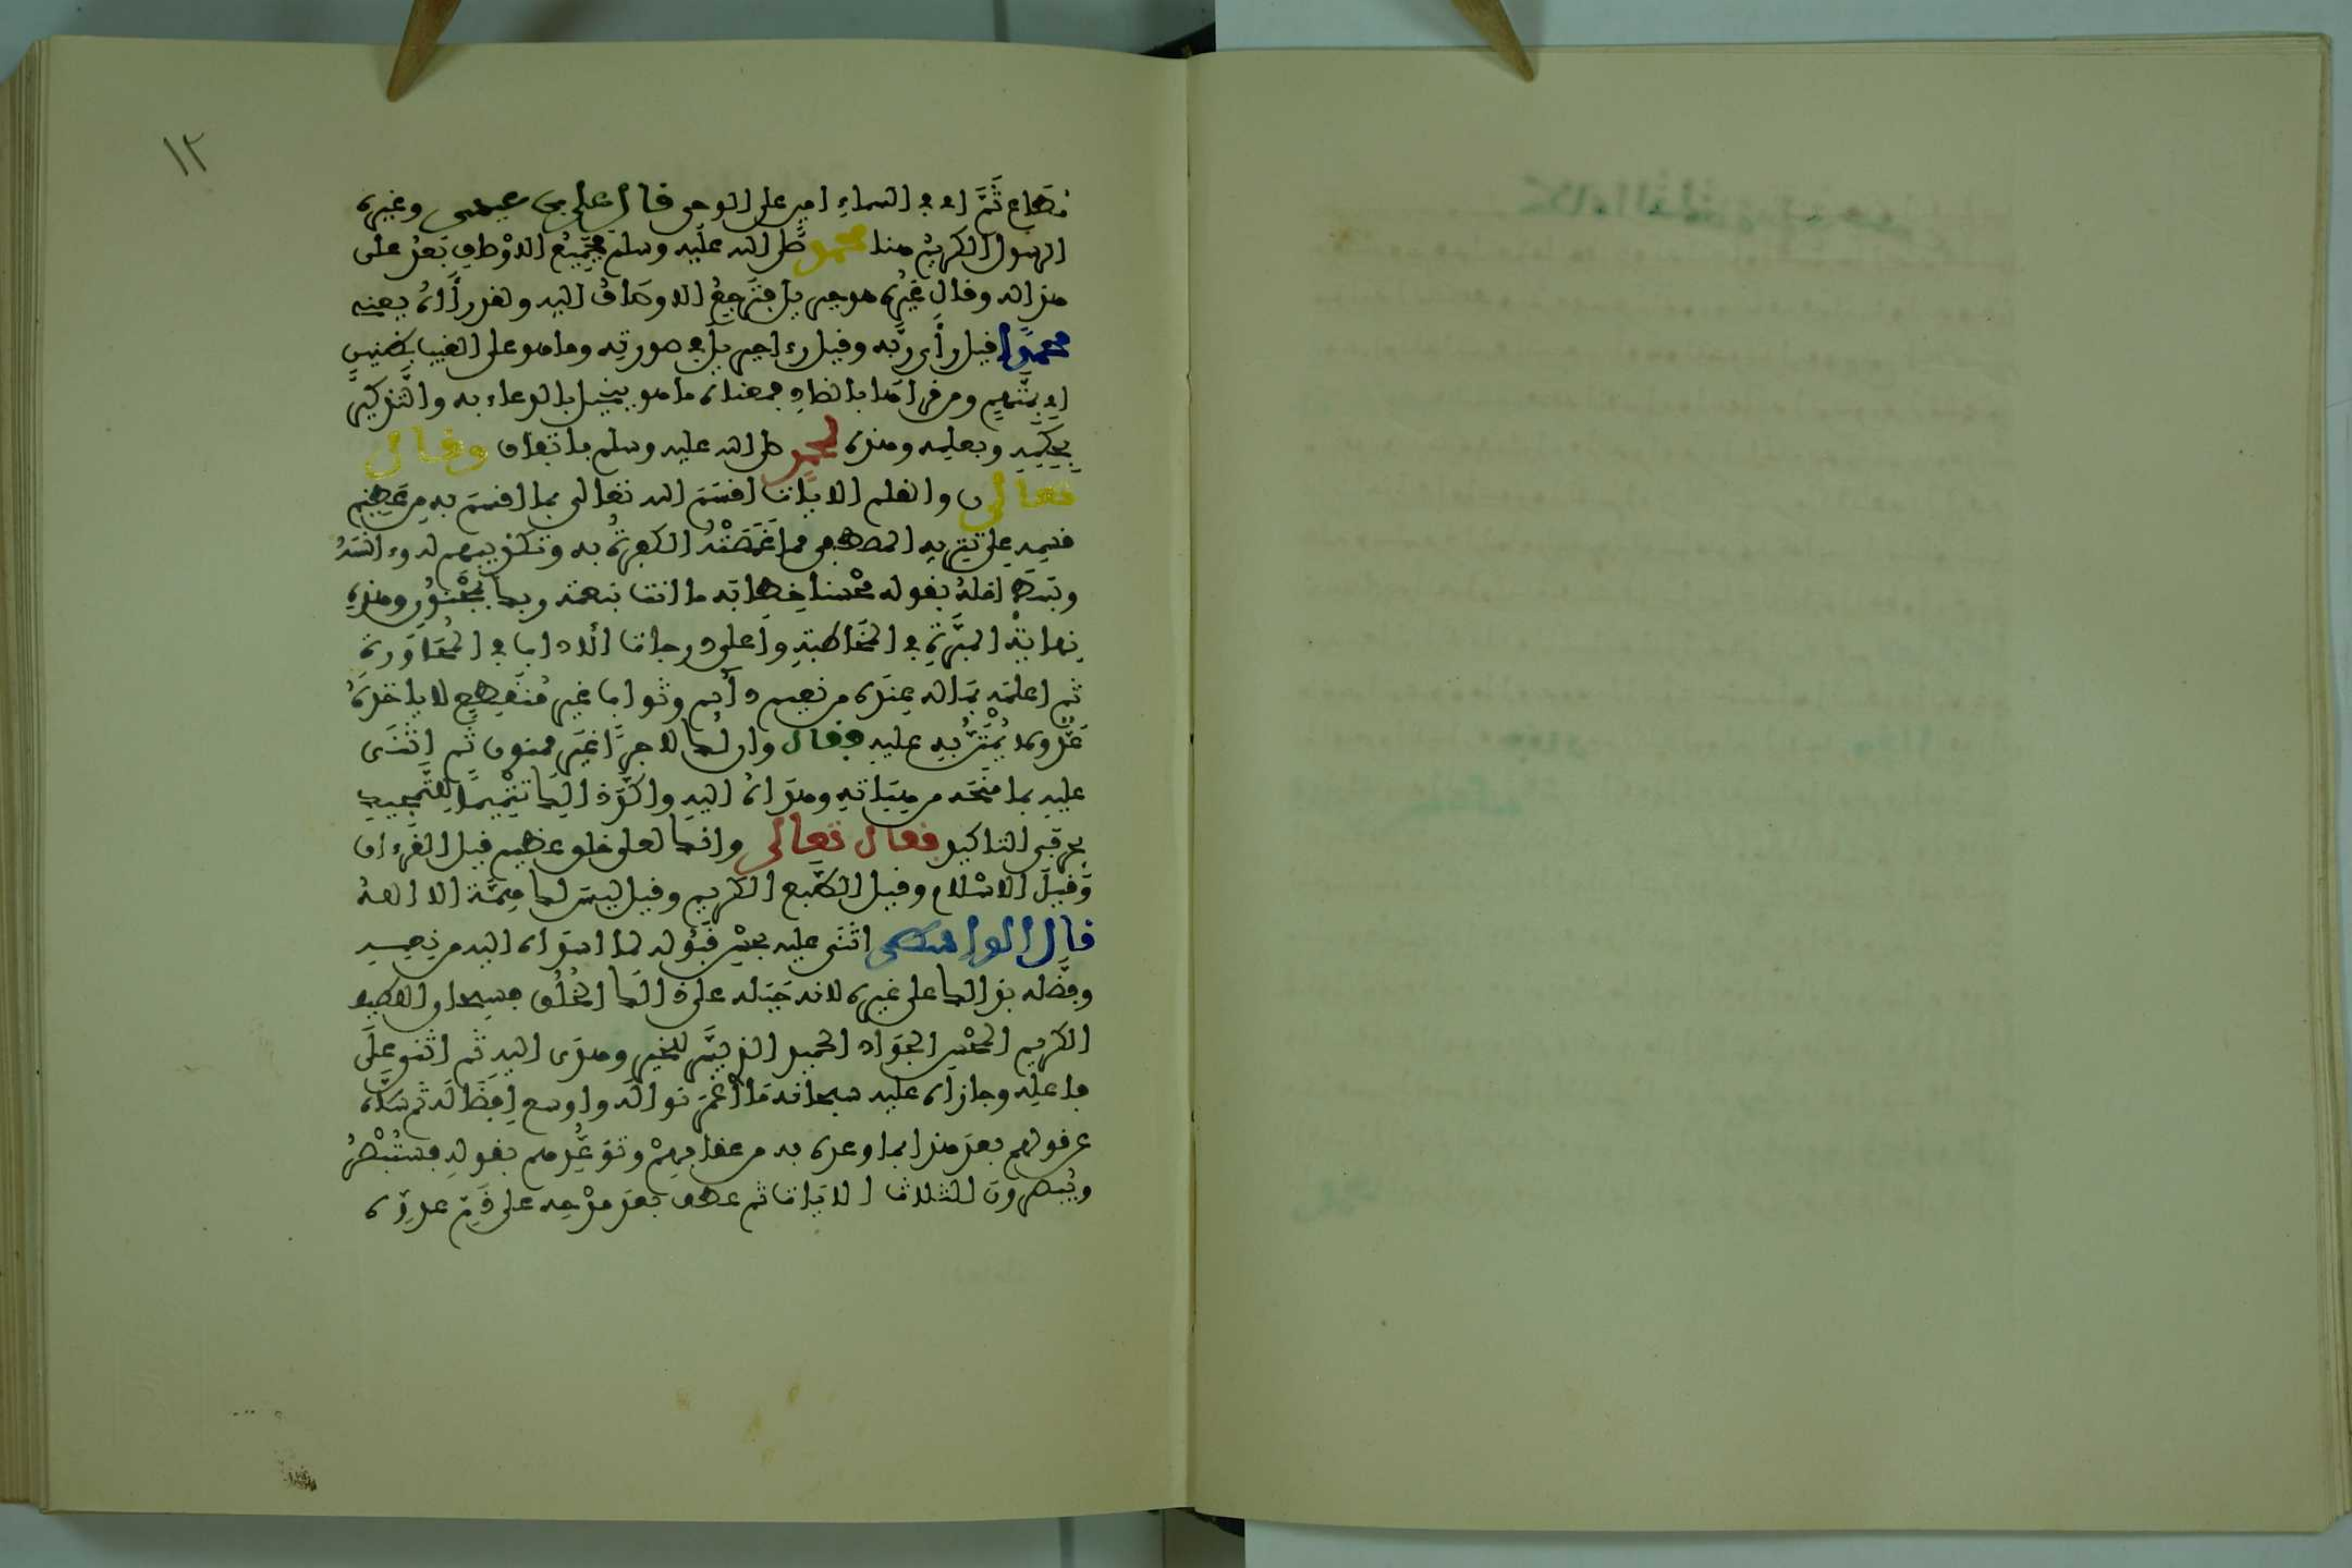 ١٢
مطاع ثَمَّ اي في السماء امين على الوحي قال علي بن عيسى وغيره
الرسول الكريم هنا محمد صلى الله عليه وسلم فجميع الاوصاف بعد على
هذا له وقال غيره هو جبريل فترجع الاوصاف اليه ولقد رءاه يعني
محمدا قيل رأى ربه وقيل رءا جبريل في صورته وما هو على الغيب بظنين
اي بمتهم ومن قراها بالضاد فمعناه ما هو ببخيل بالدعاء به والتذكير
بحكمه وبعلمه وهذه لمحمد صلى الله عليه وسلم باتفاق وقال
تعالى ن والقلم الايات اقسم الله تعالى بما اقسم به من عظيم
قسمه على تنزيه المصطفى مما غمصته الكفرة به وتكذيبهم له وءانسه
وبسط امله بقوله محسنا خطابه ما انت بنعمة ربك بمجنون وهذه
نهاية المبرة في المخاطبة وأعلى درجات الاداب في المحاورة
ثم اعلمه بما له عنده من نعيم دائم وثواب غير منقطع لا ياخذه
عد ولا يمتن به عليه فقال وان لك لاجرا غير ممنون ثم اثنى
عليه بما منحه من هباته وهداه اليه واكد ذلك تتميما للتمجيد
بحرفي التاكيد فقال تعالى وانك لعلى خلق عظيم قيل القرءان
وقيل الاسلام وقيل الطبع الكريم وقيل ليس لك همة الا الله
قال الواسطي اثنى عليه بحسن قبوله لما اسداه اليه من نعمه
وفضله بذلك على غيره لانه جبله على ذلك الخلق فسبحان اللطيف
الكريم المحسن الجواد الحميد الذي يسر للخير وهدى اليه ثم اثنى على
فاعله وجازاه عليه سبحانه ما أغمر نواله واوسع افضاله ثم سلاه
عن قولهم بعد هذا بما وعده به من عقابهم وتوعدهم بقوله فستبصر
ويبصرون الثلاث الايات ثم عطف بعد مدحه على ذم عدوه